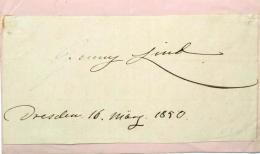 Jenny Lind
Dresden 16. März 1850.